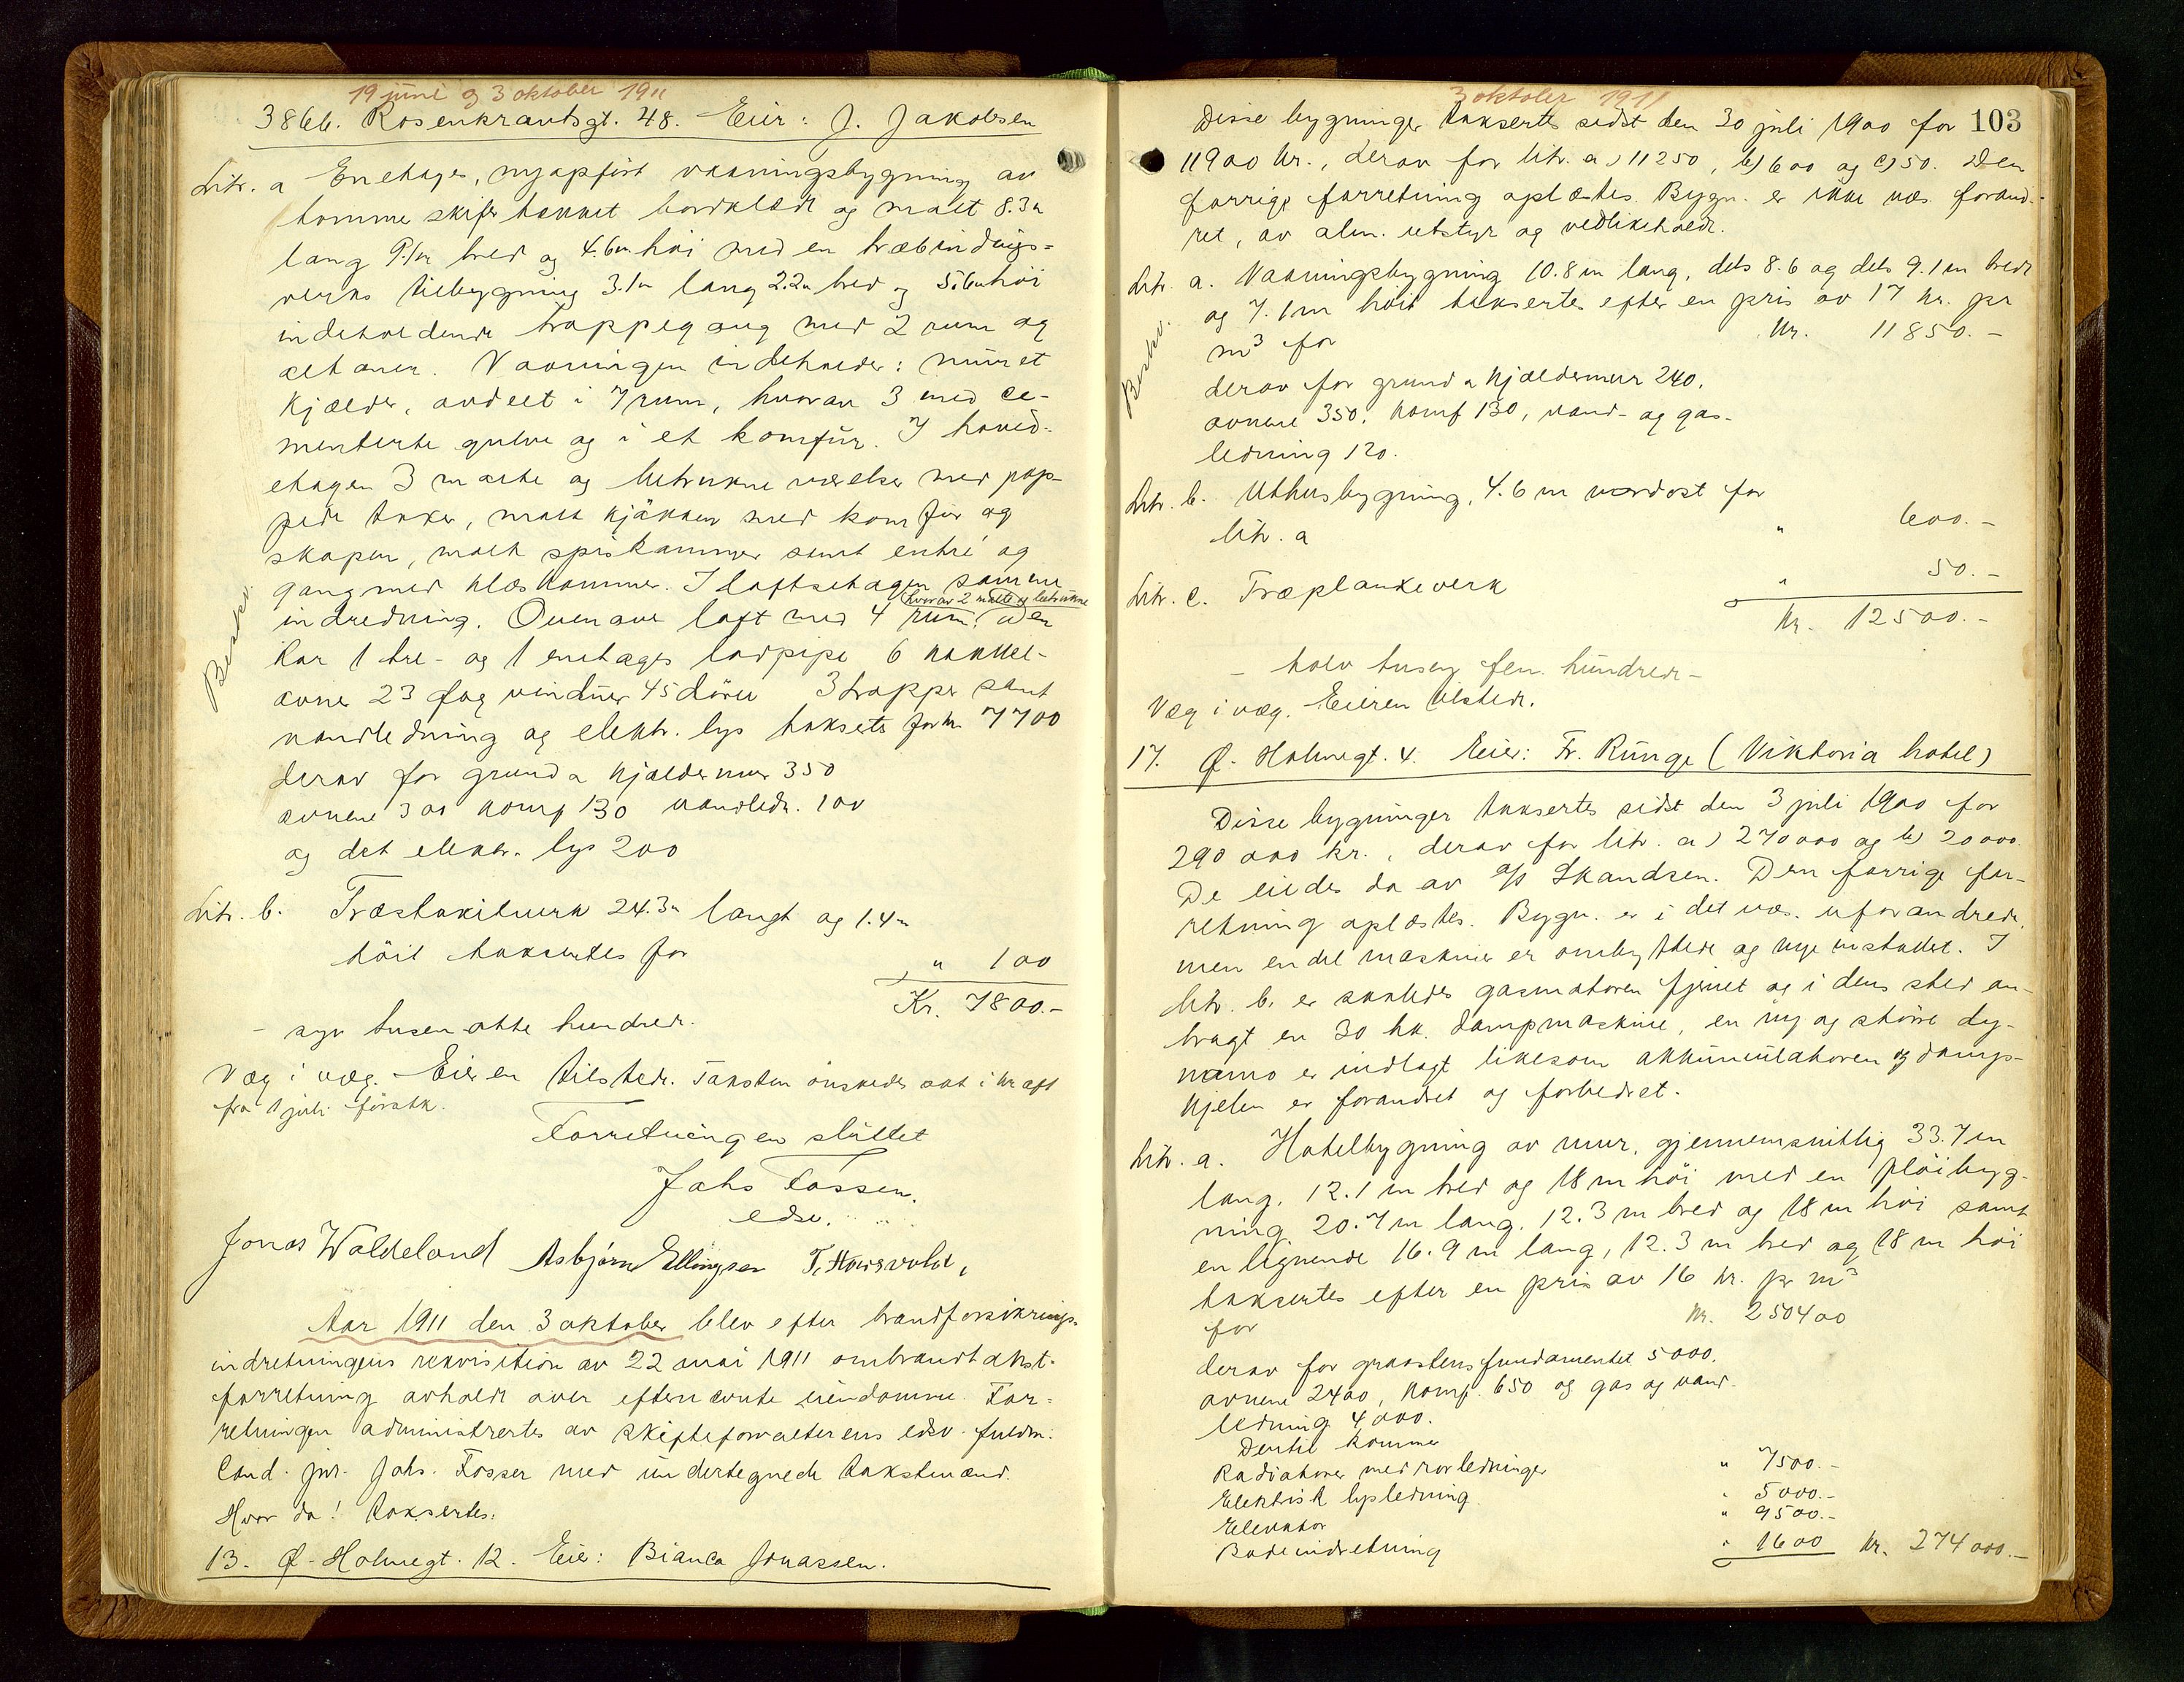 19 juni og 3 oktober 1911
386b. Rosenkrantsgt. 48. Eier: J. Jakobsen
Litr. a Enetages, nyopført vaaningsbygning av
tømmer skifertækket bordklædt og malt 8.3m
lang 9.1m bred og 4.6m høi med en træbindings-
verks tilbygning 3.1m lang 2.2m bred og 5.6m høi
indeholdende trappegang med 2 rum og
altaner. Vaaningen indeholder: muret
kjælder, avdelt i 7 rum, hvorav 3 med ce-
menterte gulve og i et komfür. I hoved-
etagen 3 malte og betrukne værelser med pap-
pede taker, malt kjøkken med komfür og
skaper, malt spiskammer samt entré og
gang med klæskammer. I loftsetagen samme
hvorav 2 malte og betrukne
indredning. Ovenover loft med 4 rum. Den
Besku.
har 1 tre- og 1 enetages lodpipe 6 kakkel-
ovne 23 fag vinduer 45 döre 3 trapper samt
vandledning og elektr. lys taksertes for kr 7700
derav for grund a kjældermur 350
ovnene 300 komf 130 vandledn. 100
og det elektr. lys 200
Litr. b. Træstakitverk 24.3m langt og 1.4m
høit taksertes for " 100
Kr. 7800.-
- syv tusen otte hundrede.
Væg i væg. Eieren tilstede. Taksten ønskedes sat i kraft
fra 1 juli førstk.
Forretningen sluttet
Johs Fossen.
edsv.
Jonas Waldeland Asbjørn Ellingsen T. Housvold,
Aar 1911 den 3 oktober blev efter brandforsikrings-
indretningens rekvisition av 22 mai 1911 ombrandtakst-
forretning avholdt over efternævnte eiendomme. For-
retningen administrertes av skifteforvalterens edsv. fuldm.
Cand. jur. Johs. Fosser med undertegnede takstmænd.
Hvor da! taksertes:
13. Ø. Holmegt. 12. Eier: Bianca Jonassen.
3 oktober 1911
103
Disse bygninger taksertes sidst den 30 juli 1900 for
11900 kr., derav for litr. a) 11250, b) 600 og c) 50. Den
forrige forretning oplæstes. Bygn. er ikke væs. forand-
ret, av alm. utstyr og vedlikeholdt.
Litr. a. Vaaningsbygning 10.8 m lang, dels 8.6 og dels 9.1 m bred
og 7.1 m höit taksertes efter en pris av 17 kr. pr
m3 for kr. 11850.-
Besku.
derav for grund a kjældermur 240,
ovnene 350, komf 130, vand- og gas-
ledning 120.
Litr. b. Uthusbygning, 4.6 m nordost for
litr. a " 600.-
Litr. c. Træplankeverk " 50.-
Kr. 12500.-
- tolv tusen fem hundrede -
Væg i væg. Eieren tilstede.
17. Ø. Holmegt. 4. Eier: Fr. Runge (Viktoria hotel)
Disse bygninger taksertes sidst den 3 juli 1900 for
290 000 kr., derav for litr. a) 270000 og b) 20000.
De eiedes da av a/s Skandsen. Den forrige for-
retning oplæstes. Bygn. er i det væs. uforandrede,
men endel maskiner er ombyttede og nye installert. I
litr. b. er saaledes gasmotoren fjernet og i dens sted an-
bragt en 30 hk. dampmaskine, en ny og større dy-
namo er indlagt likesom akkumulatoren og damp-
kjelen er forandret og forbedret.
Litr. a. Hotelbygning av mur, gjennemsnitlig 33.7 m
lang, 12.1 m bred og 18 m høi med en fløibyg-
ning 20.7 m lang, 12.3 m bred og 18 m høi samt
en lignende 16.9 m lang, 12.3 m bred og 18 m høi
taksertes efter en pris av 16 kr. pr m3
for kr. 250400
derav for graastensfundamentet 5000,
ovnene 2400, komf. 650 og gas og vand-
ledning 4000.
Dertil kommer
Radiatorer med rørledninger " 7500.-
Elektrisk lysledning " 5000.-
Elevator " 9500.-
Badeindretning " 1600 kr. 274000.-